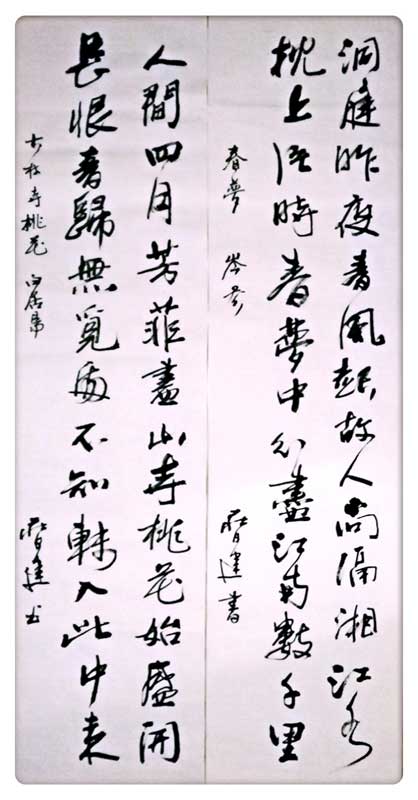 洞庭昨夜春風起故人尚隔湘江水
枕上片時春夢中行盡江南數千里
春夢 岑參
建書
人間四月芳菲盡山寺桃花始盛開
長恨春歸無覓處不知轉入此中來
大林寺桃花 白居易
建书